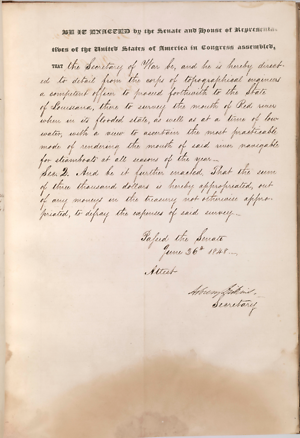 BE IT ENACTED by the Senate and House of Representa-
tives of the United States of America in Congress assembled,
THAT the Secretary of War be, and he is hereby direct
ed to detail from the corps of topographical engineers
a competent officer to proceed forthwith to the State
of Louisiana, there to survey the mouth of Red river
when in its flooded state, as well as at a time of low
water, with a view to ascertain the most practicable
mode of rendering the mouth of said river navigable
for steamboats at all seasons of the year.
Sec. 2. And be it further enacted, That the sum
of three thousand dollars is hereby appropriated, out
of any moneys in the treasury not otherwise appro-
priated, to defray the expenses of said survey.
Passed the Senate
June 26th 1848.
Attest
Asbury Dickins,
Secretary